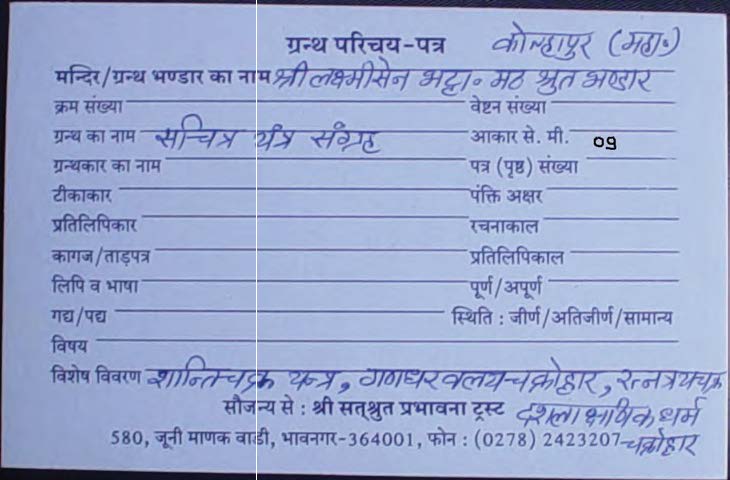 ग्रन्थ परिचय-पत्र कोल्हापुर (महा॰)
मन्दिर/ग्रन्थ भण्डार का नाम श्री लक्ष्मीसेन भट्टा॰ मठ श्रुत भण्डार
क्रम संख्या वेष्टन संख्या
ग्रन्थ का नाम सचित्र यंत्र संग्रह आकार से. मी. 09
ग्रन्थकार का नाम पत्र (पृष्ठ) संख्या
टीकाकार पंक्ति अक्षर
प्रतिलिपिकार रचनाकाल
कागज/ताड़पत्र प्रतिलिपिकाल
लिपि व भाषा पूर्ण/अपूर्ण
गद्य/पद्य स्थिति : जीर्ण/अतिजीर्ण/सामान्य
विषय
विशेष विवरण शान्तिचक्र यन्त्र, गणधरवलयचक्रोद्धार, रत्नत्रयचक्र
सौजन्य से : श्री सत्श्रुत प्रभावना ट्रस्ट दशलाक्षणिक धर्म
580, जूनी माणक वाडी, भावनगर-364001, फोन : (0278) 2423207 चक्रोद्धार